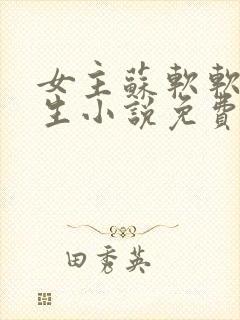 女主蘇軟軟
生小說免費
田秀英